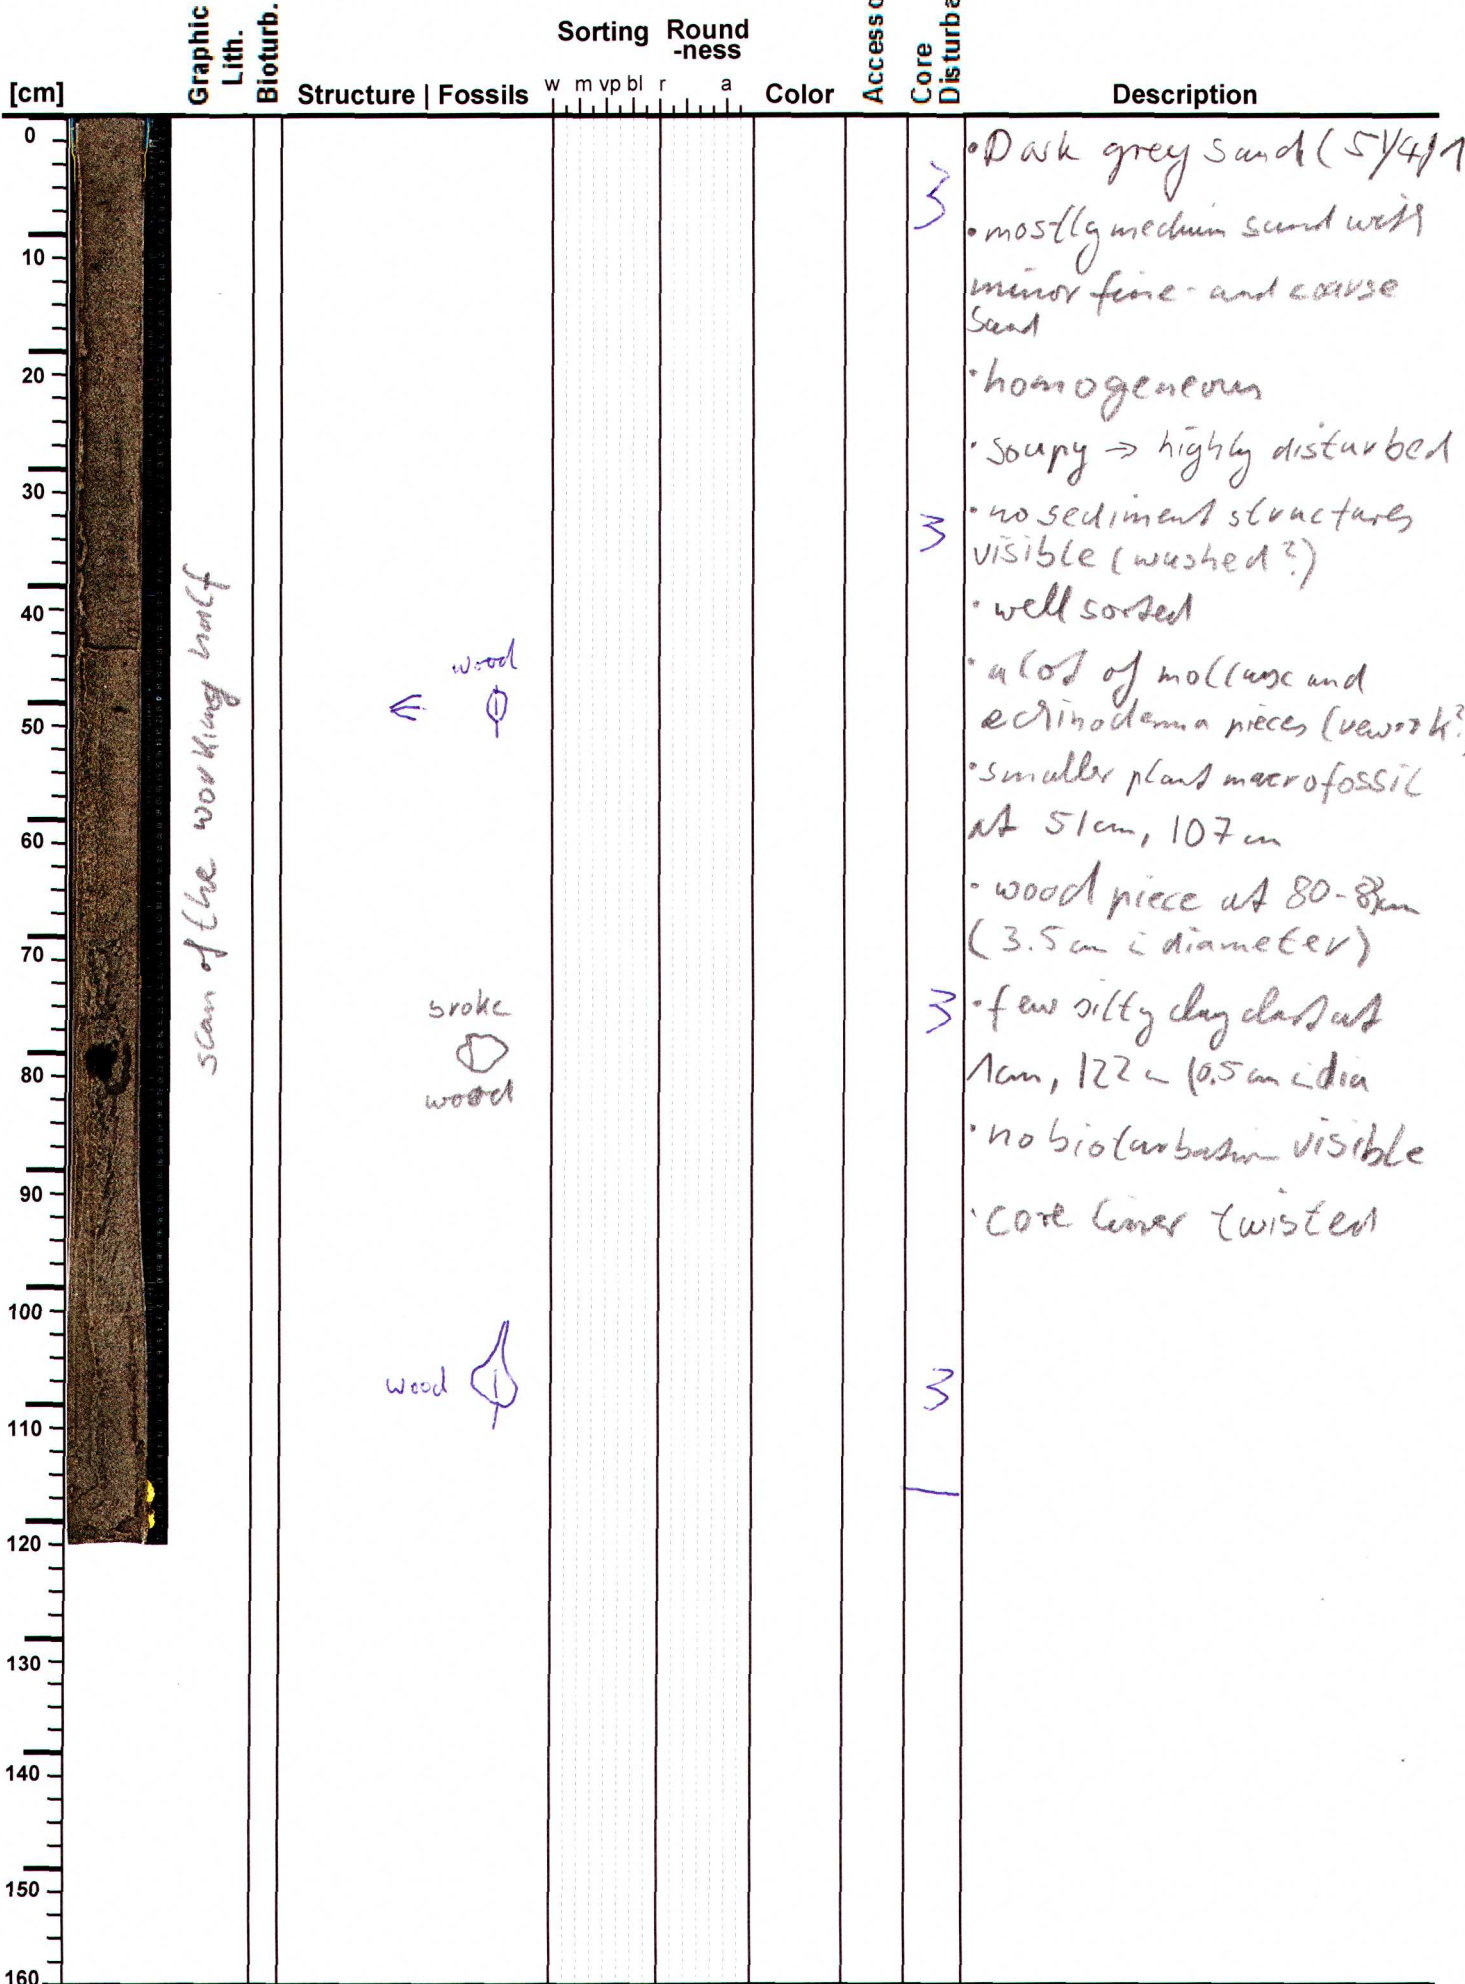 [cm]
Graphic
Lith.
Bioturb.
Structure | Fossils
Sorting
w m vp bl
Round
-ness
r a
Color
Accesso
Core
Disturba
Description
0
10
20
30
40
50
60
70
80
90
100
110
120
130
140
150
160
scan of the working half
wood
broke
wood
wood
3
3
3
3
• Dark grey sand (5Y/4/1
• mostly medium sand with
minor fine- and coarse
sand
• homogeneous
• soupy → highly disturbed
• no sediment structures
visible (washed?)
• well sorted
• a lot of mollusc and
echinoderma pieces (rework?
• smaller plant macrofossil
at 51cm, 107 cm
• wood piece at 80-cm
(3.5 cm i diameter)
• few silty clay clast at
1cm, 122 (0.5 cm i dia
• no bioturbation visible
• core liner twisted